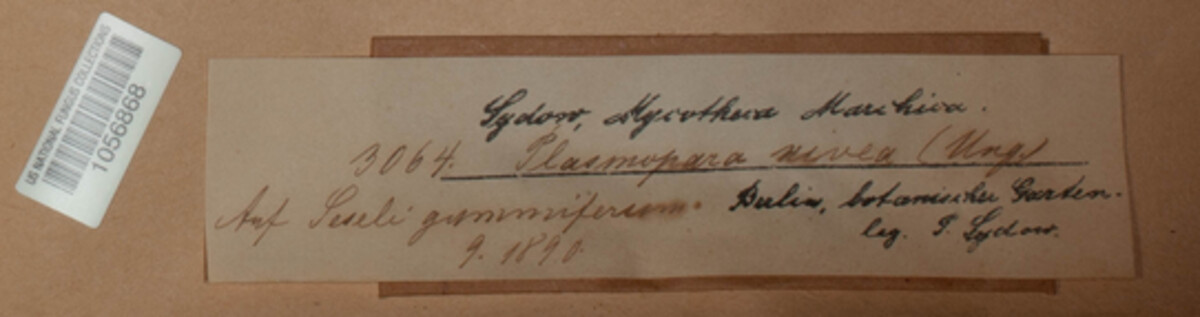 US NATIONAL FUNGUS COLLECTIONS
1056868
Sydow, Mycotheca Marchica.
3064. Plasmopara nivea (Ung.)
Auf Seseli gummiferum. Berlin, botanischer Garten.
9. 1890. leg. P. Sydow.